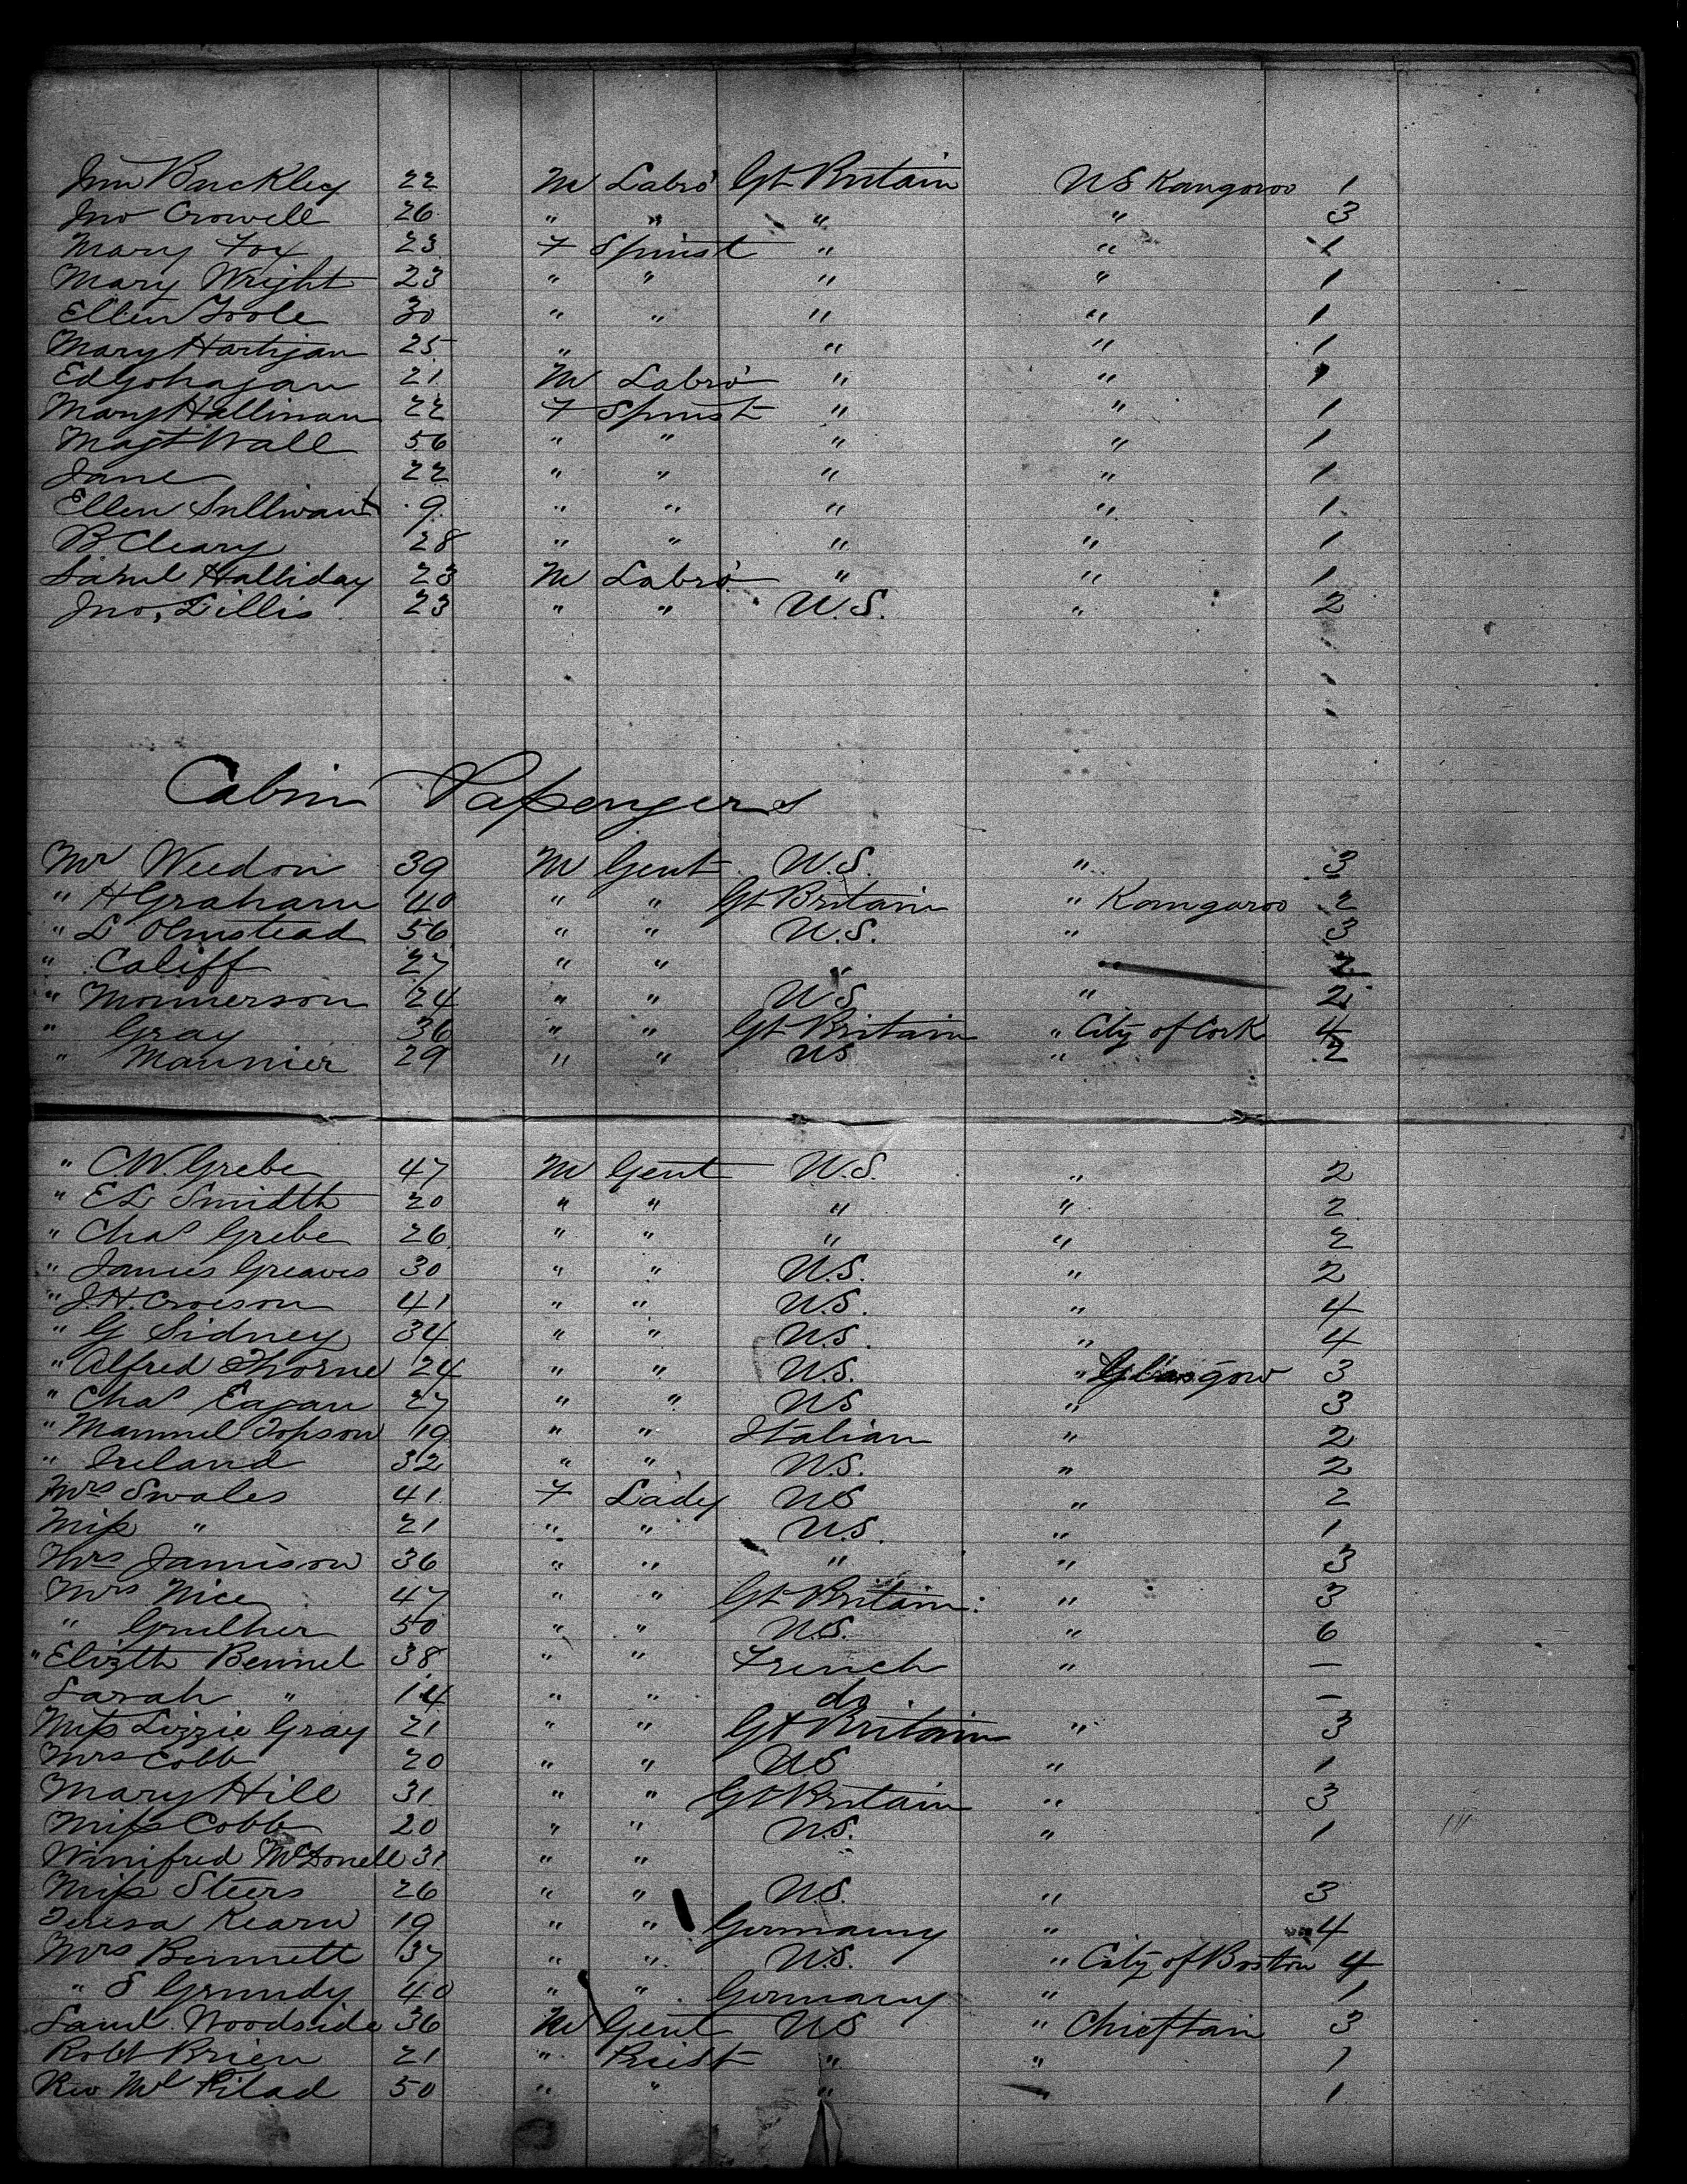 Jno Buckley 22 M Labr Gt Britain US Kangaroo 1
Jno Crowell 26 " " " " 3
Mary Fox 23 F Spinst " " 1
Mary Wright 23 " " " " 1
Ellen Toole 30 " " " " 1
Mary Hartigan 25 " " " 1
Ed Gohagan 21 M Labr " " 1
Mary Hallinan 22 F Spinst " " 1
Magt Wall 56 " " " " 1
Jane 22 " " " " 1
Ellen Sullivan 9 " " " " 1
B Cleary 28 " " " " 1
Saml Halliday 23 M Labr " " 1
Jno. Lillis 23 " " U.S. " 2
Cabin Passengers
Mr Weedon 39 M Gent U.S. " 3
" H Graham 40 " " Gt Britain " Kangaroo 2
" L Olmstead 56 " " U.S. " 3
" Califf 27 " " "
" Monnerson 24 " " US " 2
" Gray 36 " " Gt Britain " City of Cork 4
" Maunier 29 " " US " 2
" CW Grebe 47 M Gent U.S. " 2
" EL Smidth 20 " " " " 2
" Chas Grebe 26 " " " " 2
" James Greaves 30 " " U.S. " 2
" J.H. Croeson 41 " " U.S. " 4
" G Sidney 34 " " U.S. " 4
" Alfred Thorne 24 " " U.S. " Glasgow 3
" Chas Eagan 27 " " US " 3
" Manuel Topson 19 " " Italian " 2
" Ireland 32 " " U.S. " 2
Mrs Swales 41 F Lady US " 2
Miss " 21 " " U.S. " 1
Mrs Jamison 36 " " " " 3
Mrs Nice 47 " " Gt Britain " 3
" Grulher 50 " " U.S. " 6
" Elizth Bennel 38 " " French " —
Sarah " 14 " " do —
Miss Lizzie Gray 21 " " Gt Britain " 3
Mrs Cobb 20 " " US " 1
Mary Hill 31 " " Gt Britain " 3
Miss Cobb 20 " " U.S. " 1
Winifred McDonell 31 " "
Miss Steers 26 " " U.S. " 3
Teresa Kearn 19 " " Germany " 4
Mrs Bennett 37 " " U.S. " City of Boston 4
" S Grundy 40 " " Germany " 1
Saml Woodside 36 M Gent US " Chieftain 3
Robt Brien 21 " Priest " " 1
Rev Mc 50 " " " 1